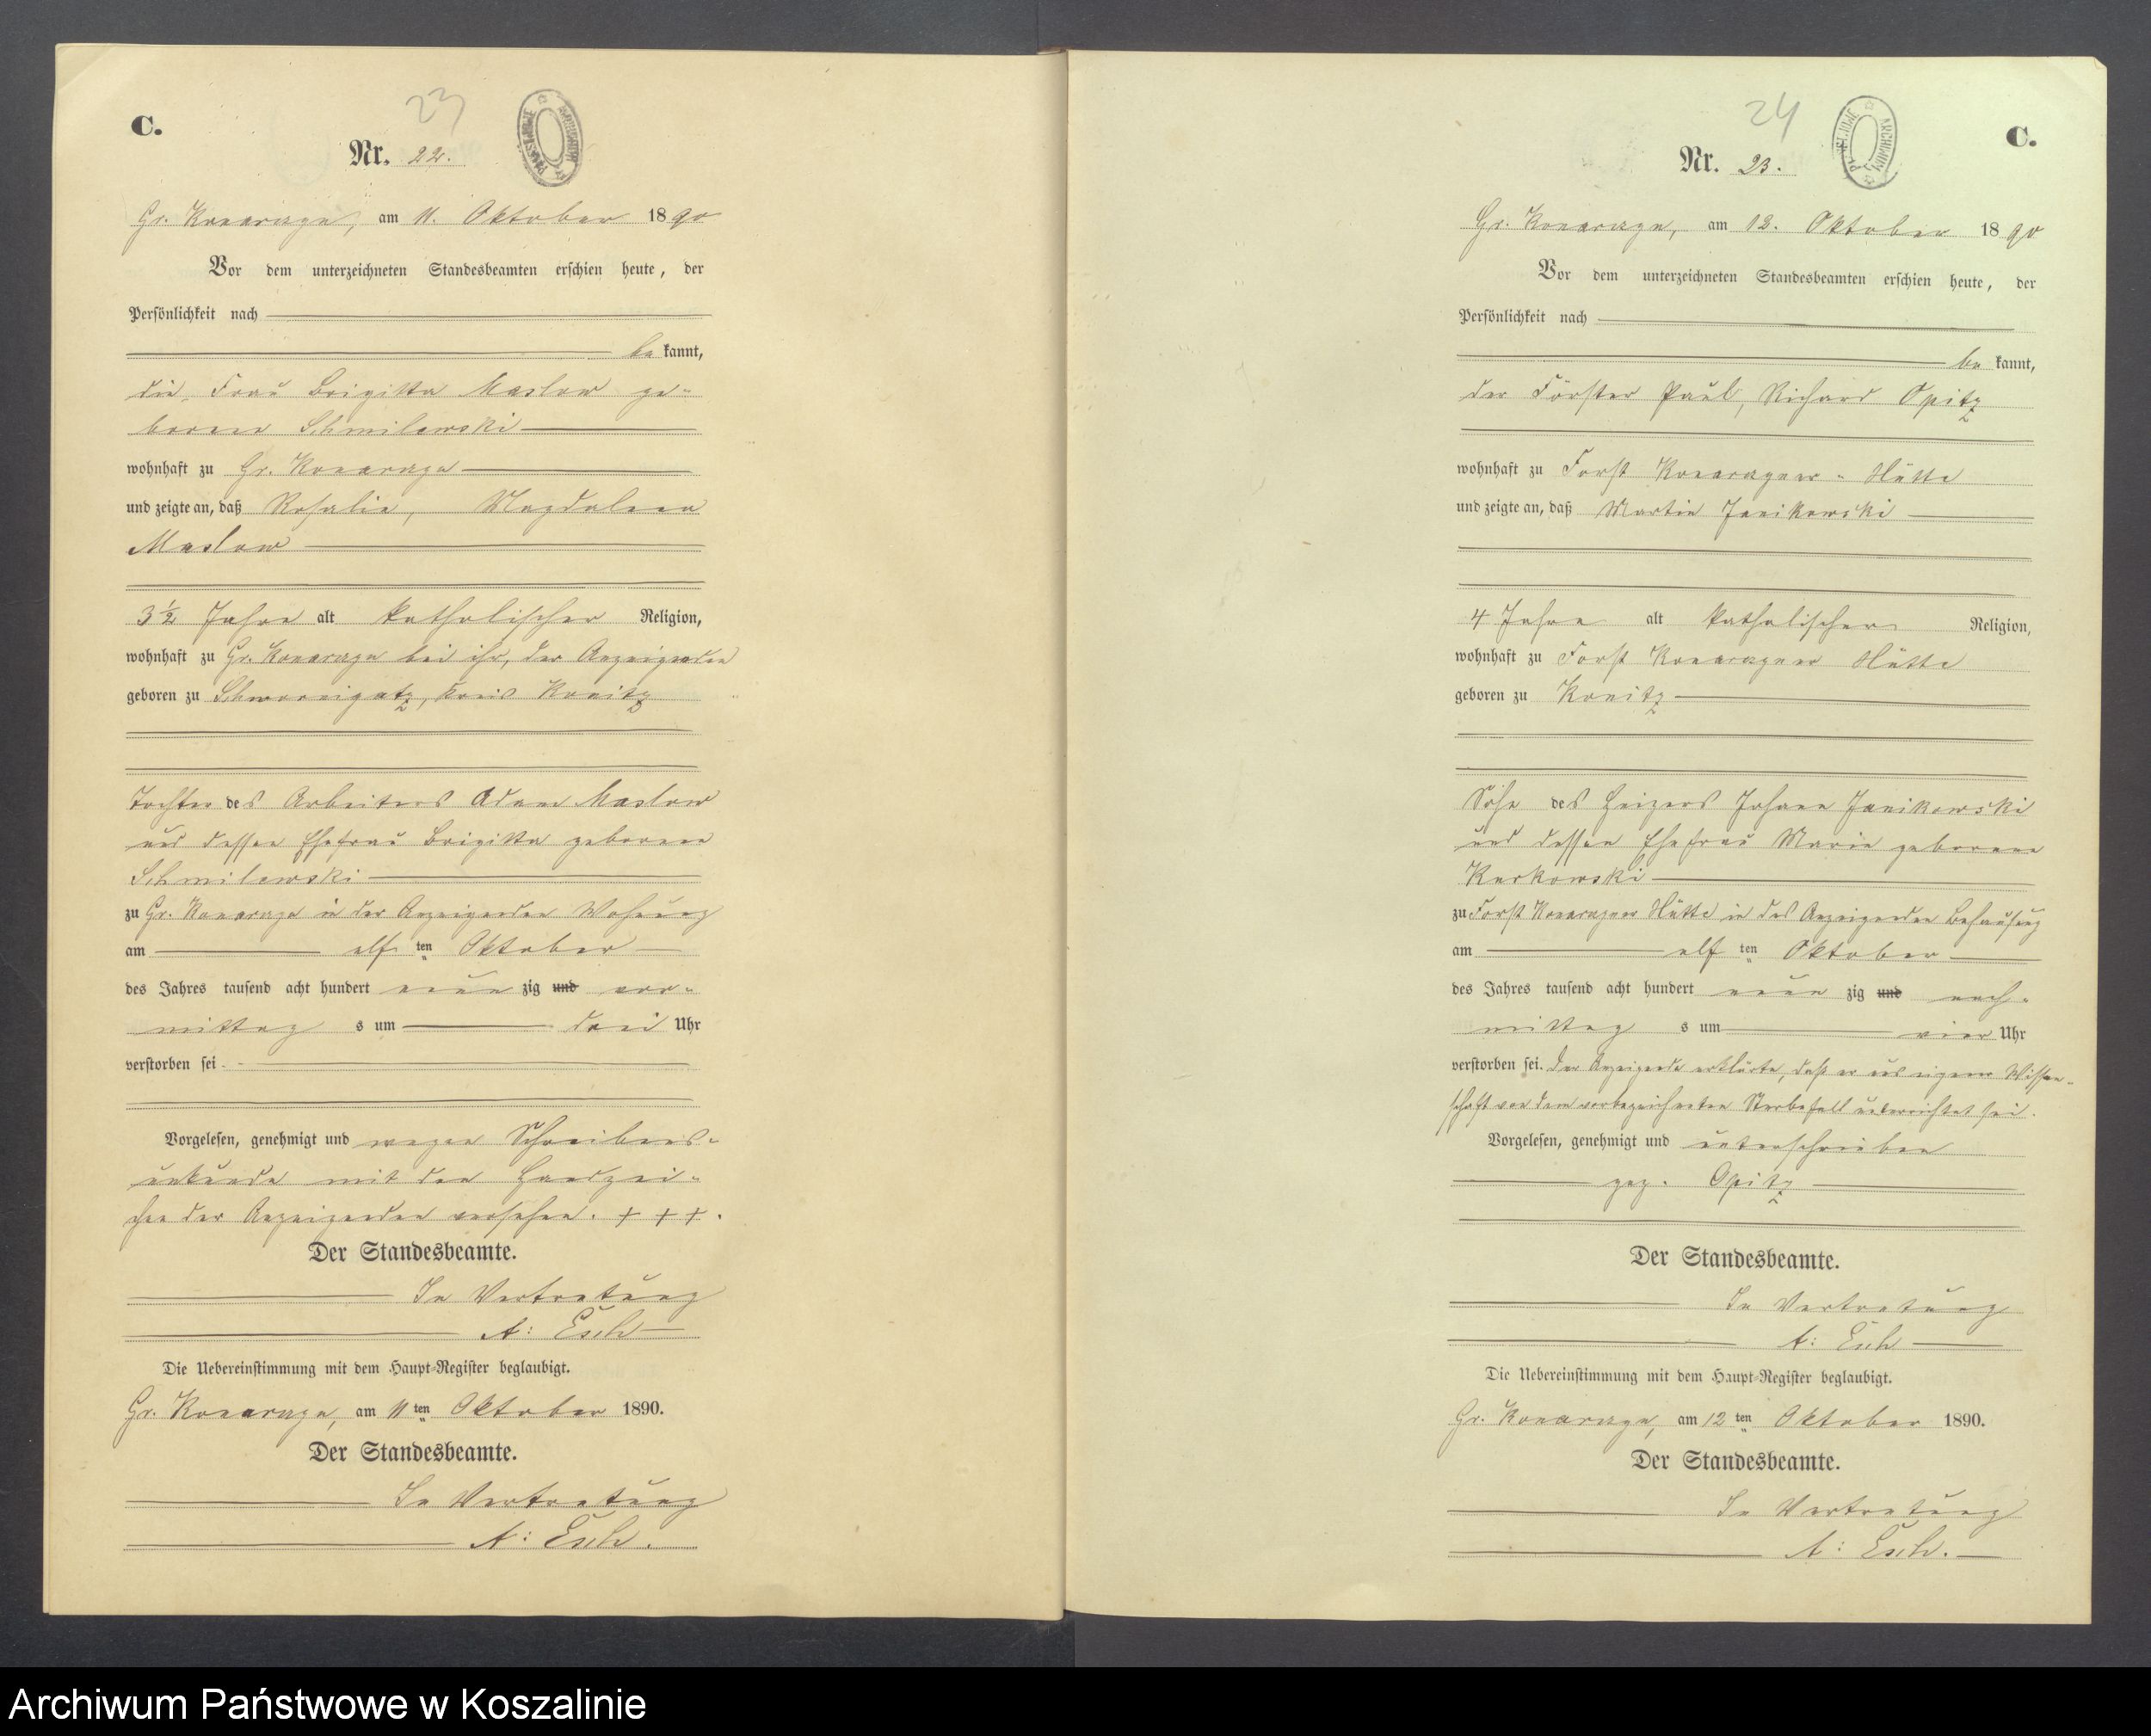 23
C.
Nr. 22.
Gr. Konarczyn, am 11. Oktober 1890
Vor dem unterzeichneten Standesbeamten erschien heute, der
Persönlichkeit nach
be kannt,
die Frau Brigitta Maslow ge-
borene Schmilewski
wohnhaft zu Gr. Konarczyn
und zeigte an, daß Rosalie, Magdalena
Maslow
3½ Jahre alt katholischer Religion,
wohnhaft zu Gr. Konarczyn bei ihr, der Anzeigenden
geboren zu Schwornigatz, Kreis Konitz
Tochter des Arbeiters Adam Maslow
und dessen Ehefrau Brigitta geborene
Schmilewski
zu Gr. Konarczyn in der Anzeigenden Wohnung
am elf ten Oktober
des Jahres tausend acht hundert neun zig und vor-
mittag s um drei Uhr
verstorben sei.
Vorgelesen, genehmigt und wegen Schreibens-
unkunde mit den Handzei-
chen der Anzeigenden versehen. + + +.
Der Standesbeamte.
In Vertretung
A: Esch
Die Uebereinstimmung mit dem Haupt-Register beglaubigt.
Gr. Konarczyn, am 11 ten Oktober 1890.
Der Standesbeamte.
In Vertretung
A: Esch.
24
C.
Nr. 23.
Gr. Konarczyn, am 12. Oktober 1890
Vor dem unterzeichneten Standesbeamten erschien heute, der
Persönlichkeit nach
be kannt,
der Förster Paul, Richard Opitz
wohnhaft zu Forst Konarczyner-Hütte
und zeigte an, daß Martin Janikowski
4 Jahre alt katholischer Religion,
wohnhaft zu Forst Konarczyner Hütte
geboren zu Konitz
Sohn des Heizers Johann Janikowski
und dessen Ehefrau Marie geborene
Kurkowski
zu Forst Konarczyner Hütte in des Anzeigenden Behausung
am elf ten Oktober
des Jahres tausend acht hundert neun zig und nach-
mittag s um vier Uhr
verstorben sei. Der Anzeigende erklärte, daß er aus eigener Wissen-
schaft von dem vorbezeichneten Sterbefall unterrichtet sei.
Vorgelesen, genehmigt und unterschrieben
gez. Opitz
Der Standesbeamte.
In Vertretung
A: Esch
Die Uebereinstimmung mit dem Haupt-Register beglaubigt.
Gr. Konarczyn, am 12 ten Oktober 1890.
Der Standesbeamte.
In Vertretung
A: Esch.
Archiwum Państwowe w Koszalinie